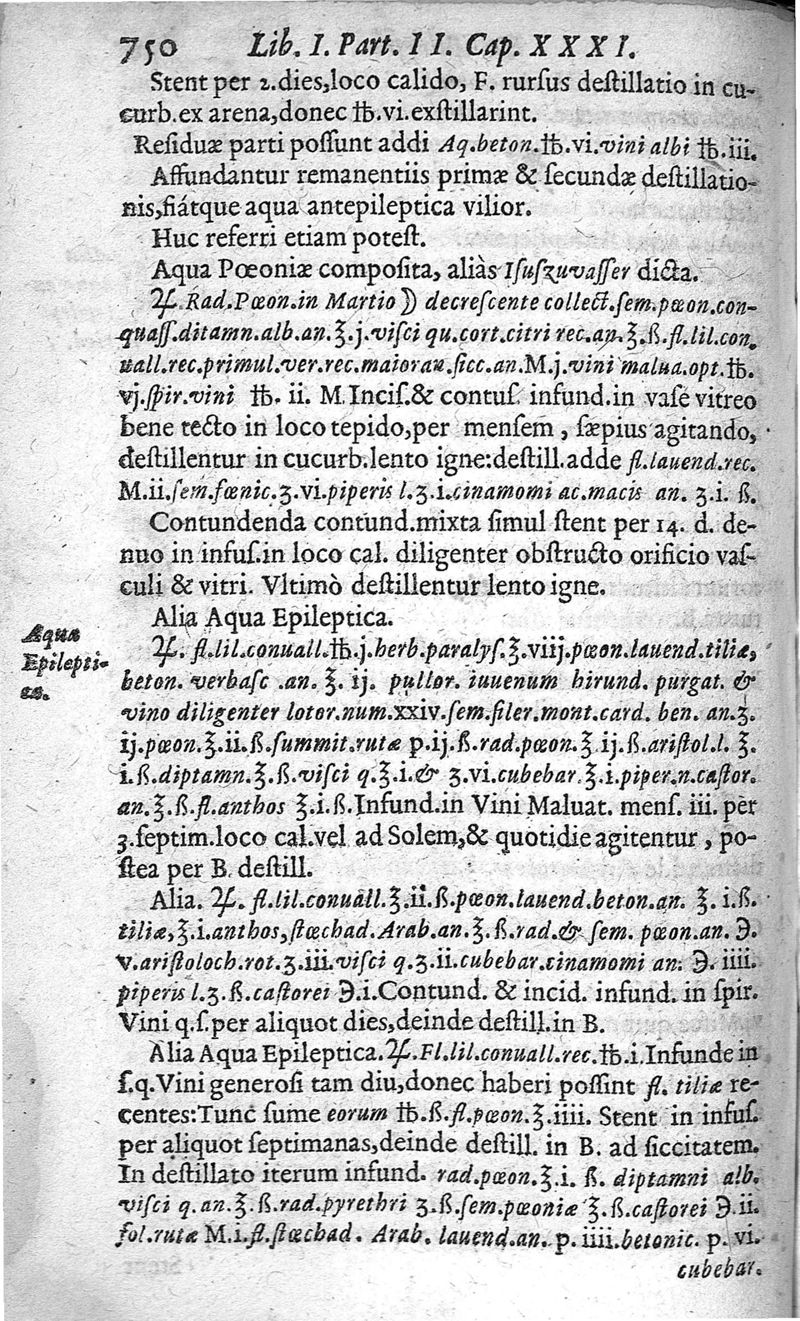 750 Lib. I. Part. II. Cap. XXXI.
Stent per 2.dies,loco calido, F. rursus destillatio in cu-
curb.ex arena,donec ℔.vi.exstillarint.
Residuæ parti possunt addi Aq.beton.℔.vi.vini albi ℔.iii.
Affundantur remanentiis primæ & secundæ destillatio-
nis,fiátque aqua antepileptica vilior.
Huc referri etiam potest.
Aqua Pœoniæ composita, aliàs Isuszuvasser dicta.
♃.Rad.Pœon.in Martio ☽ decrescente collect.sem.pœon.con-
quass.ditamn.alb.an.℥.j.visci qu.cort.citri rec.an.℥.ß.fl.lil.con.
uall.rec.primul.ver.rec.maioran.sicc.an.M.j.vini malua.opt.℔.
vj.spir.vini ℔. ii. M.Incis.& contus. infund.in vase vitreo
bene tecto in loco tepido,per mensem , sæpius agitando,
destillentur in cucurb.lento igne:destill.adde fl.lauend.rec.
M.ii.sem.fœnic.ʒ.vi.piperis l.ʒ.i.cinamomi ac.macis an. ʒ.i. ß.
Contundenda contund.mixta simul stent per 14. d. de-
nuo in infus.in loco cal. diligenter obstructo orificio vas-
culi & vitri. Vltimò destillentur lento igne.
Alia Aqua Epileptica.
Aqua
Epilepti-
ca.
♃. fl.lil.conuall.℔.j.herb.paralys.℥.viij.pœon.lauend.tiliæ,
beton. verbasc .an. ℥. ij. pullor. iuuenum hirund. purgat. &
vino diligenter lotor.num.xxiv.sem.siler.mont.card. ben. an.ʒ.
ij.pœon.℥.ii.ß.summit.rutæ p.ij.ß.rad.pœon.℥.ij.ß.aristol.l. ℥.
i.ß.diptamn.℥.ß.visci q.℥.i.& ʒ.vi.cubebar.℥.i.piper.n.castor.
an.℥.ß.fl.anthos ℥.i.ß.Infund.in Vini Maluat. mens. iii. per
3.septim.loco cal.vel ad Solem,& quotidie agitentur , po-
stea per B. destill.
Alia. ♃. fl.lil.conuall.℥.ii.ß.pœon.lauend.beton.an. ℥. i.ß.
tiliæ,℥.i.anthos,stœchad.Arab.an.℥.ß.rad.& sem. pœon.an. ℈.
v.aristoloch.rot.ʒ.iii.visci q.ʒ.ii.cubebar.cinamomi an. ℈. iiii.
piperis l.ʒ.ß.castorei ℈.i.Contund. & incid. infund. in spir.
Vini q.s.per aliquot dies,deinde destill.in B.
Alia Aqua Epileptica.♃.Fl.lil.conuall.rec.℔.i.Infunde in
s.q.Vini generosi tam diu,donec haberi possint fl. tiliæ re-
centes:Tunc sume eorum ℔.ß.fl.pœon.℥.iiii. Stent in infus.
per aliquot septimanas,deinde destill. in B. ad siccitatem.
In destillato iterum infund. rad.pœon.℥.i. ß. diptamni alb.
visci q.an.℥.ß.rad.pyrethri ʒ.ß.sem.pœoniæ ℥.ß.castorei ℈.ii.
fol.rutæ M.i.fl.stœchad. Arab. lauend.an. p. iiii.betonic. p. vi.
cubebar.